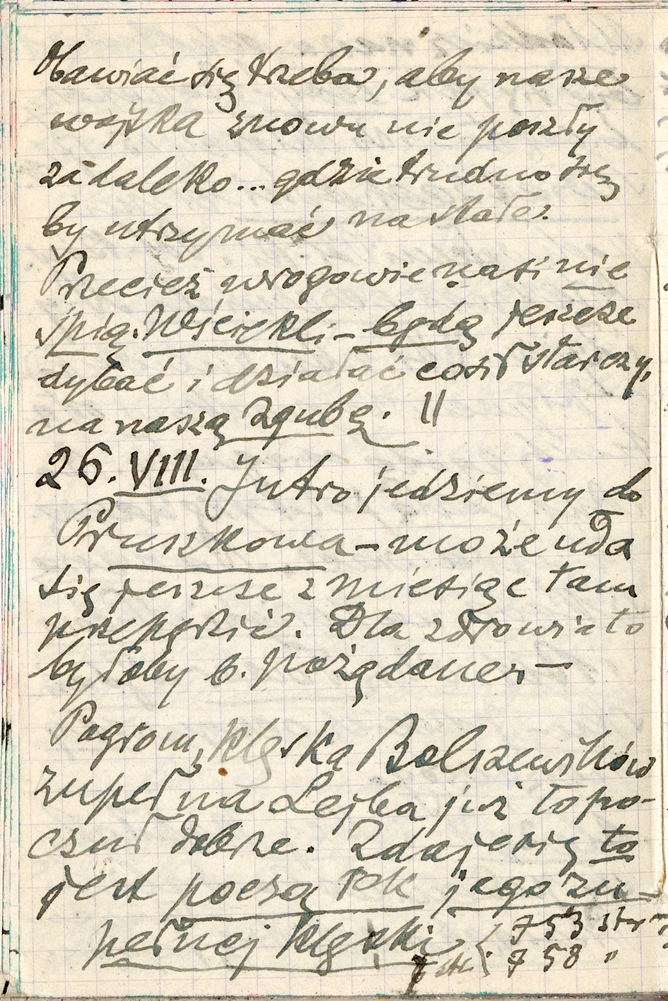 Obawiać się trzeba, aby nasze
wojska znowu nie poszły
za daleko... gdzie trudno się
by utrzymać na stałe.
Przecież wrogowie nasi nie
śpią. Wściekli – będą jeszcze
dybać i działać coś starczy,
na naszą zgubę. ||
26. VIII. Jutro jedziemy do
Pruszkowa – może uda
się jeszcze z miesiąc tam
przepędzić. Dla zdrowia to
byłoby b. pożądanem –
Pogrom, klęska Bolszewików
zupełna Lejba już to po-
czuł dobrze. Zdaje się to
jest początek jego zu-
pełnej klęski
753 str
758 "